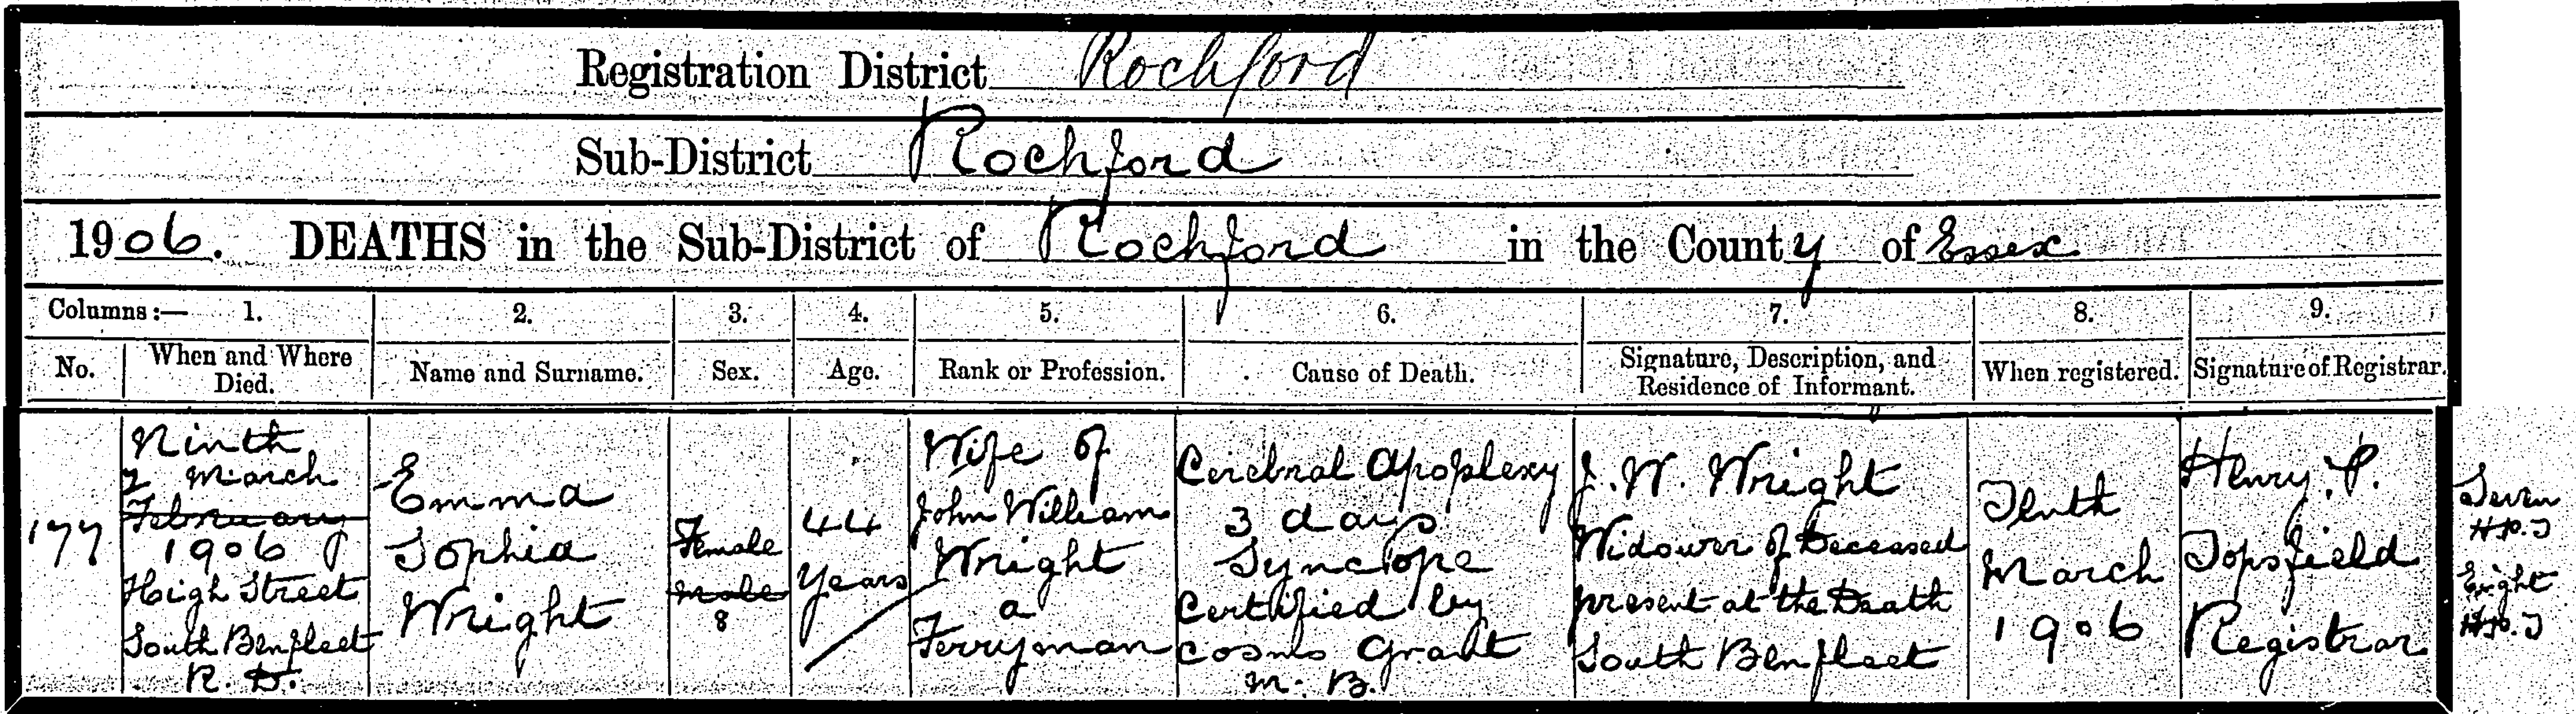 Registration District Rochford
Sub-District Rochford
1906. DEATHS in the Sub-District of Rochford in the County of Essex
Columns :— 1. 2. 3. 4. 5. 6. 7. 8. 9.
No. When and Where Died. Name and Surname. Sex. Age. Rank or Profession. Cause of Death. Signature, Description, and Residence of Informant. When registered. Signature of Registrar.
177
Ninth
7 March
February
1906
High Street
South Benfleet
R. D.
Emma
Sophia
Wright
Female
Male
8
44
Years
Wife of
John William
Wright
a
Ferryman
Cerebral Apoplexy
3 days
Syncope
Certified by
Cosmo Grant
M. B.
J. W. Wright
Widower of Deceased
present at the Death
South Benfleet
Tenth
March
1906
Henry. P.
Topsfield
Registrar
Seven
H.P.T
Eight
H.P.T